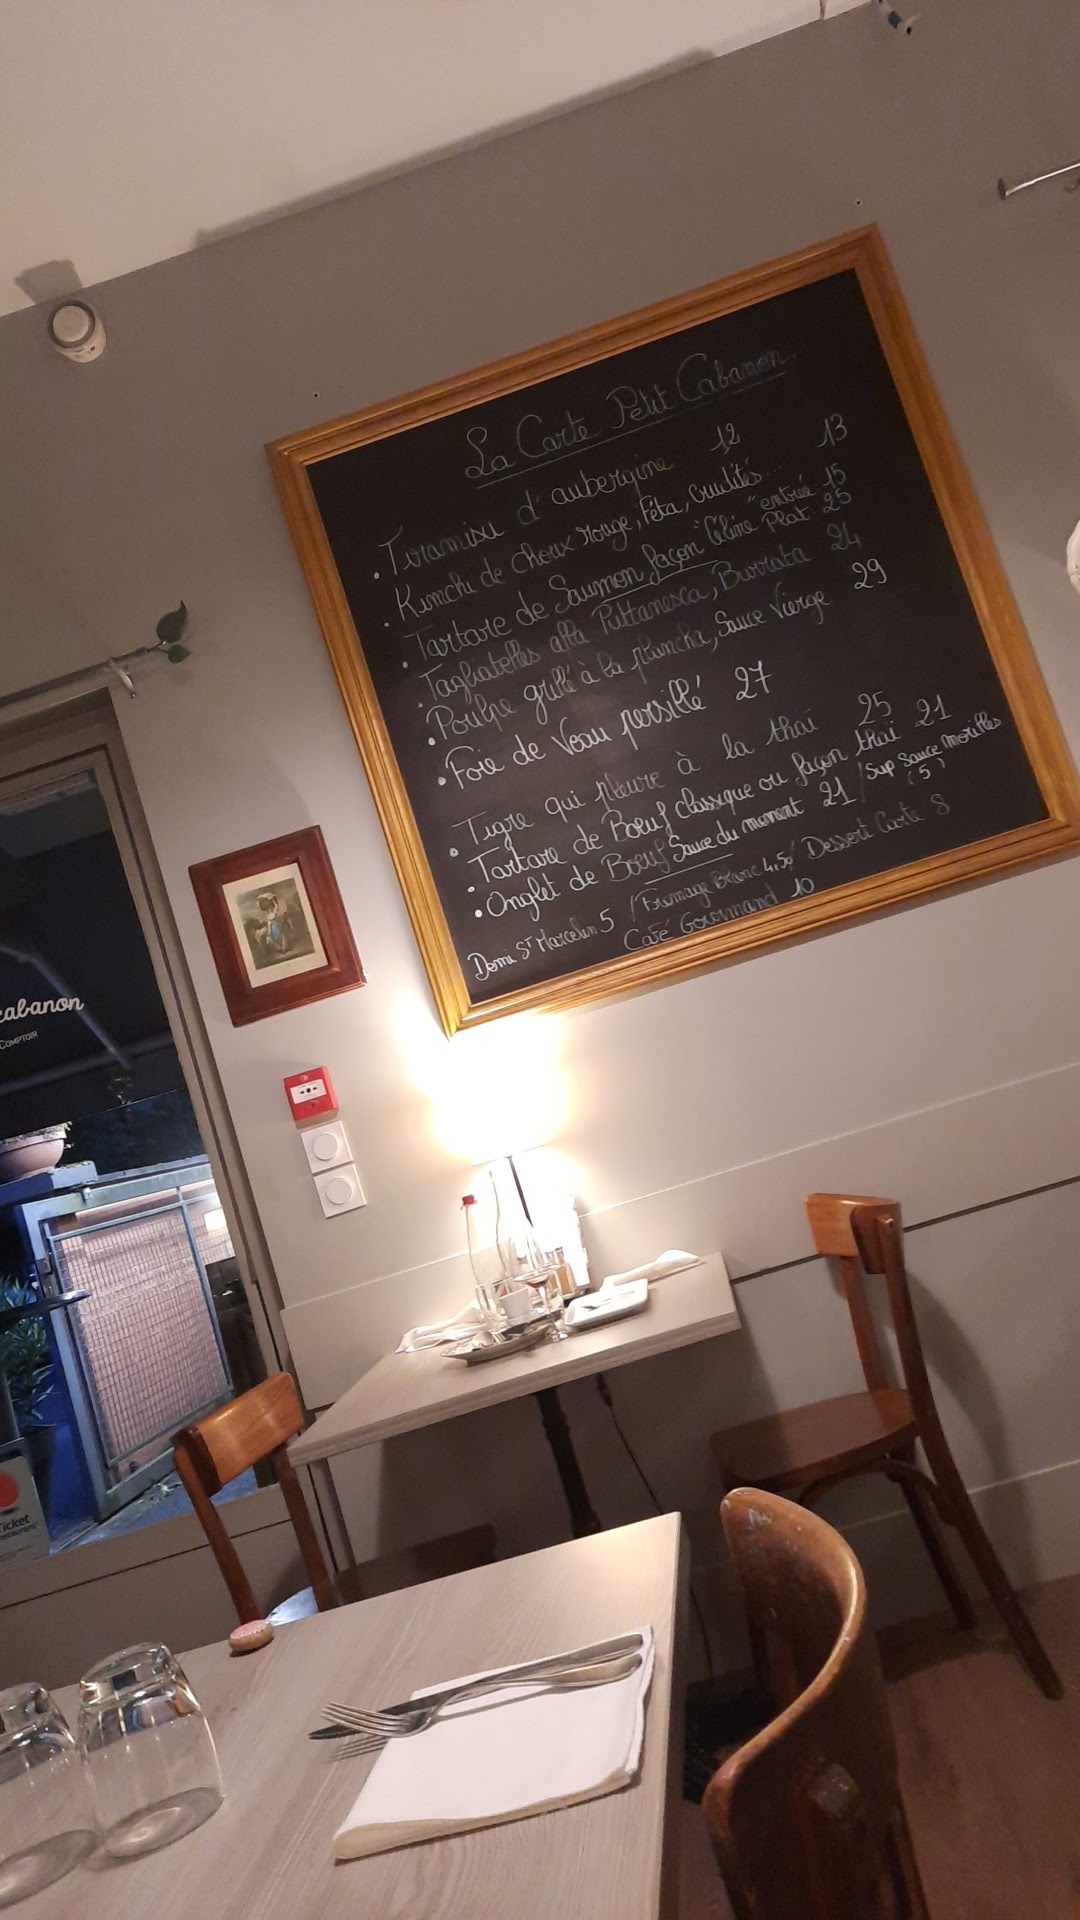 La Carte Petit Cabanon.
• Tiramisu d'aubergine 12
• Kimchi de choux rouge, Féta, crudités... 13
• Tartare de Saumon façon "Céline" entrée 15
Plat 25
• Tagliatelles alla Puttanesca, Burrata 24
• Poulpe grillé à la plancha, Sauce Vierge 29
• Foie de Veau persillé 27
• Tigre qui pleure à la thaï 25
• Tartare de Boeuf classique ou façon thaï 21
• Onglet de Boeuf Sauce du moment 21 / Sup Sauce Morilles
(5)
Demi St Marcelin 5 / Fromage Blanc 4,50 / Dessert Carte 8
Café Gourmand 10
cabanon
Comptoir
Ticket
Restaurant